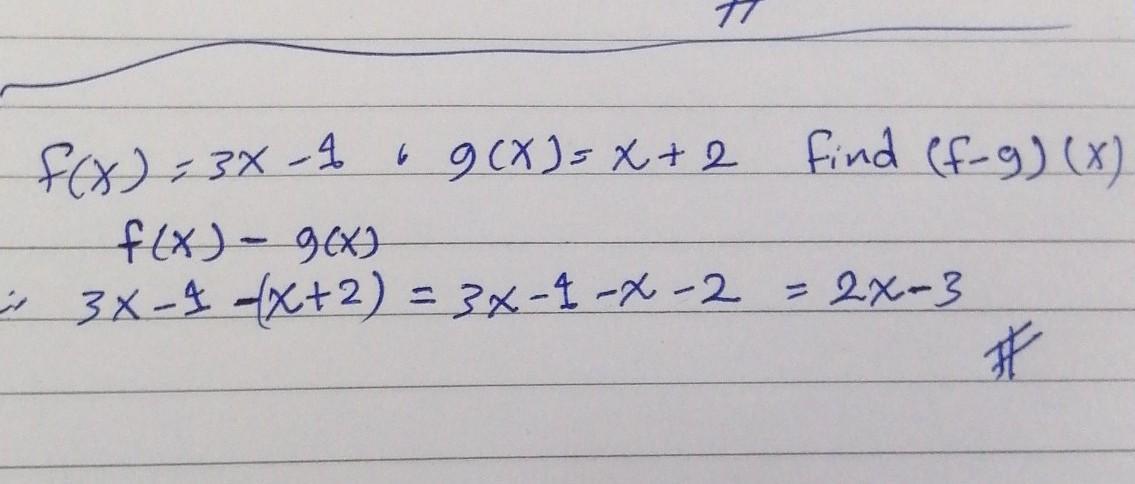 f(x) = 3x - 1 , g(x) = x + 2 find (f-g)(x)
f(x) - g(x)
∴ 3x - 1 - (x+2) = 3x - 1 - x - 2 = 2x - 3
#